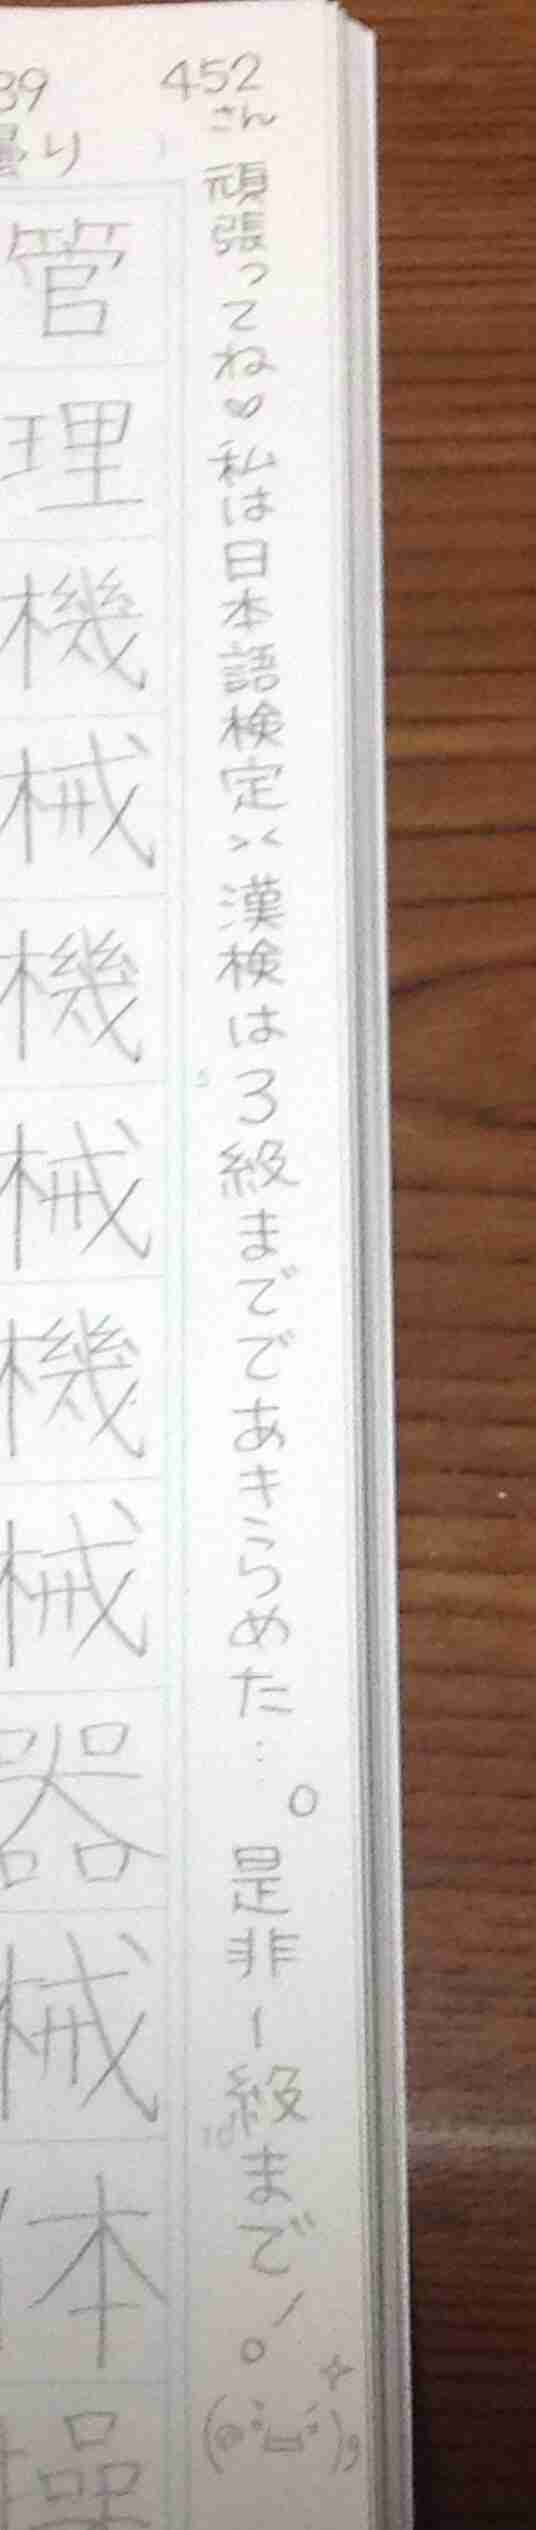 452
さん
頑張ってね♡私は日本語検定><漢検は3級まででであきらめた…。是非1級まで!。(๑•̀ㅂ•́)و✧
39
曇り
管理機械機械機械器械本操